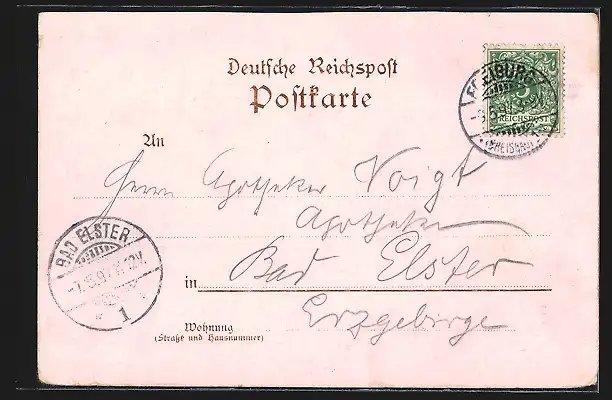 Deutsche Reichspost
Postkarte
REICHSPOST
An
Herrn Apotheker Voigt
Apotheker
BAD ELSTER
1
in Bad Elster
Erzgebirge
Wohnung
(Straße und Hausnummer)